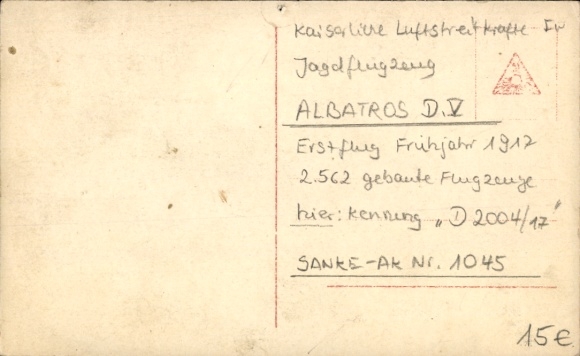 Kaiserliche Luftstreitkräfte
Jagdflugzeug
ALBATROS D.V
Erstflug Frühjahr 1917
2.562 gebaute Flugzeuge
hier: Kennung „D 2004/17"
SANKE-AK Nr. 1045
15€